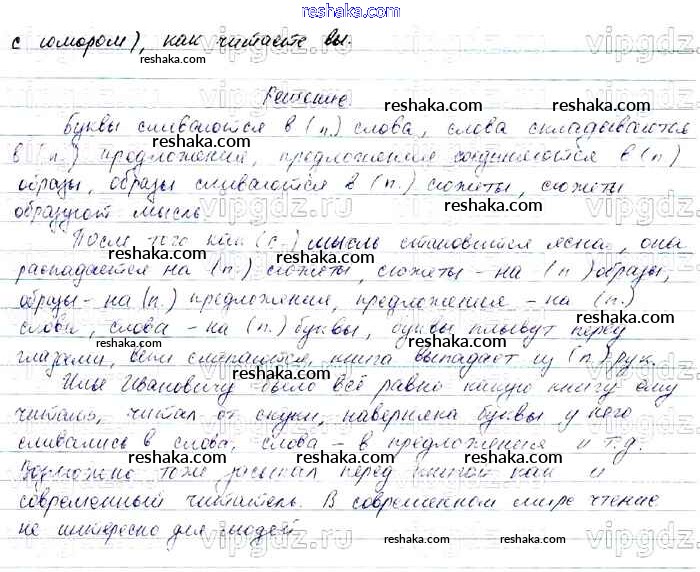 с юмором), как читаете вы.
Решение.
Буквы сливаются в (п.) слова, слова складываются
в (п.) предложения, предложения соединяются в (п)
образы, образы сливаются в (п.) сюжеты, сюжеты
образуют мысль.
После того как (с.) мысль становится ясна, она
распадается на (п.) сюжеты, сюжеты - на (п) образы,
образы - на (п.) предложения, предложения - на (п.)
слова, слова - на (п.) буквы, буквы плывут перед
глазами, веки смыкаются, книга выпадает из (п) рук.
Илье Ивановичу было всё равно какую книгу ему
читать, читал от скуки, наверняка буквы у него
сливались в слова, слова - в предложения и т.д.
Возможно тоже засыпал перед книгой как и
современный читатель. В современном мире чтение
не интересно для людей
reshaka.com
vipgdz.com